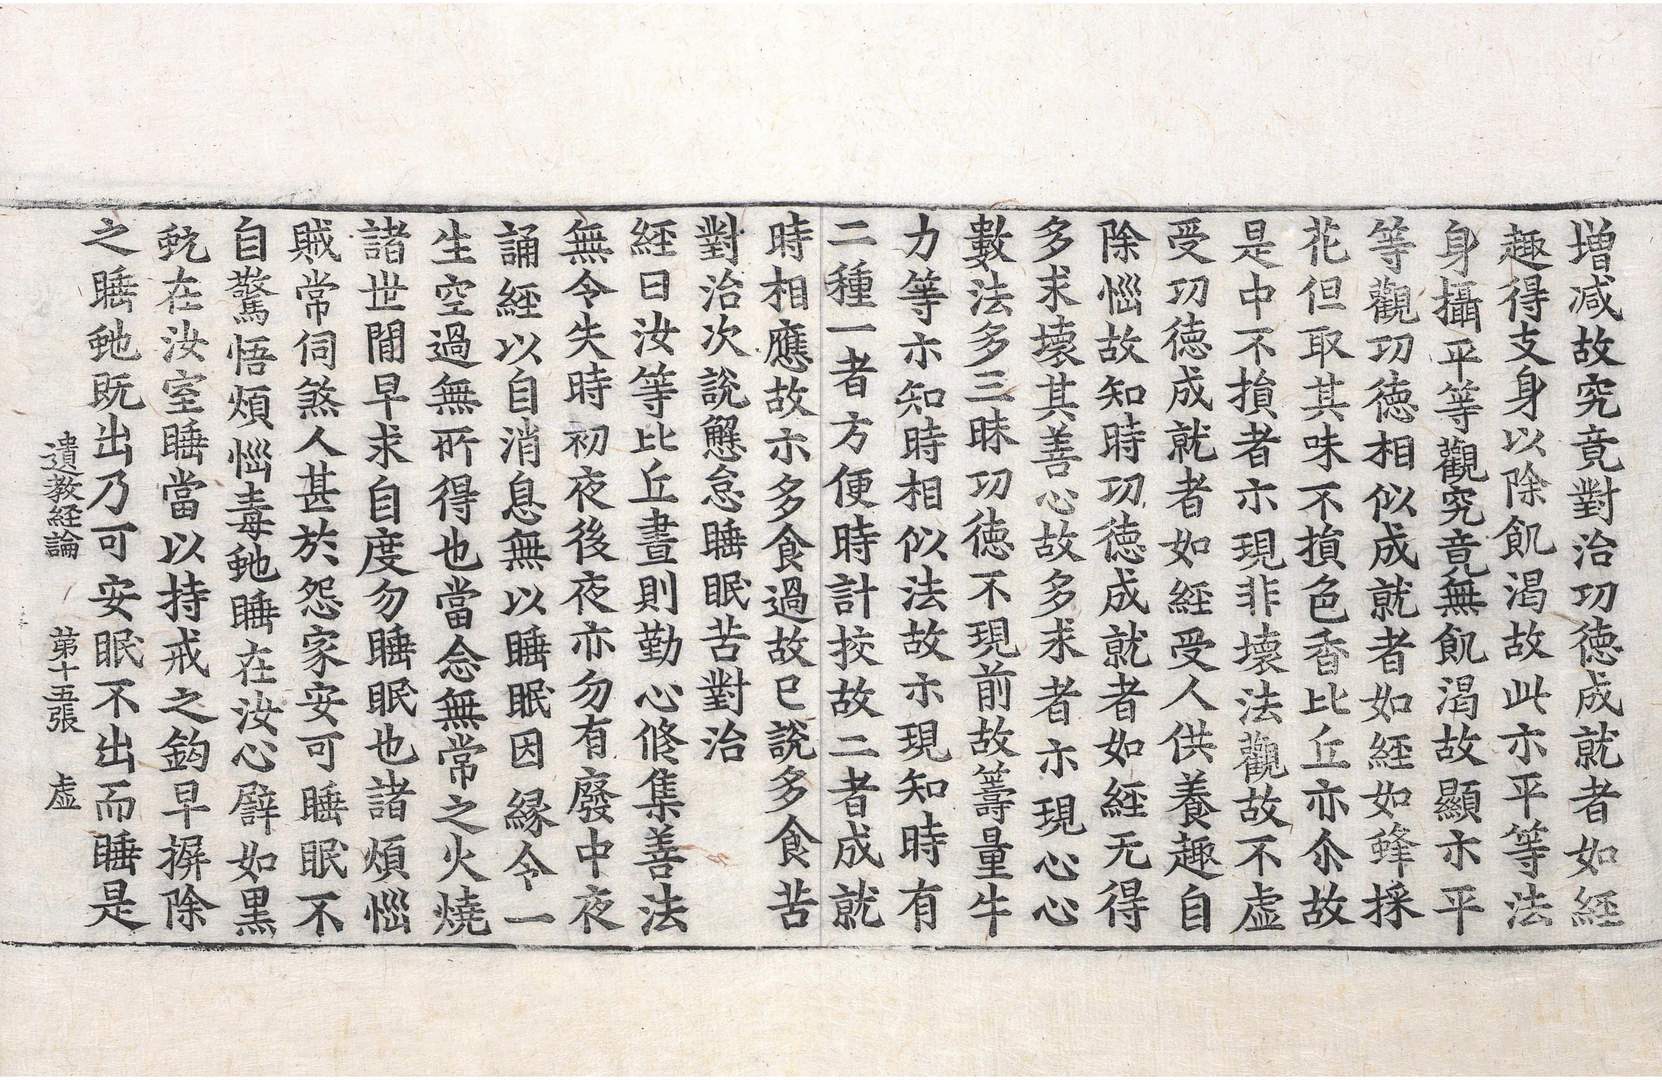 增减故究竟對治功德成就者如經
趣得支身以除飢渴故此示平等法
身攝平等觀究竟無飢渴故顯示平
等觀功德相似成就者如經如蜂採
花但取其味不損色香比丘亦尒故
是中不損者示現非壞法觀故不虛
受功德成就者如經受人供養趣自
除惱故知時功德成就者如經无得
多求壞其善心故多求者示現心心
數法多三昧功德不現前故籌量牛
力等示知時相似法故示現知時有
二種一者方便時計挍故二者成就
時相應故示多食過故已說多食苦
對治次說懈怠睡眠苦對治
經曰汝等比丘晝則勤心修集善法
無令失時初夜後夜亦勿有廢中夜
誦經以自消息無以睡眠因緣令一
生空過無所得也當念無常之火燒
諸世間早求自度勿睡眠也諸煩惱
賊常伺煞人甚於怨家安可睡眠不
自驚悟煩惱毒虵睡在汝心譬如黑
蚖在汝室睡當以持戒之鉤早摒除
之睡虵既出乃可安眠不出而睡是
遺教經論 第十五張 虛